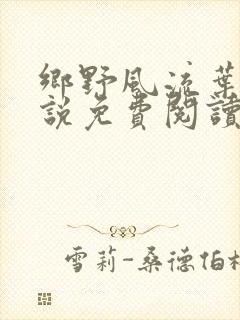 鄉野風流葉
說免費閱讀
雪莉-桑德伯格